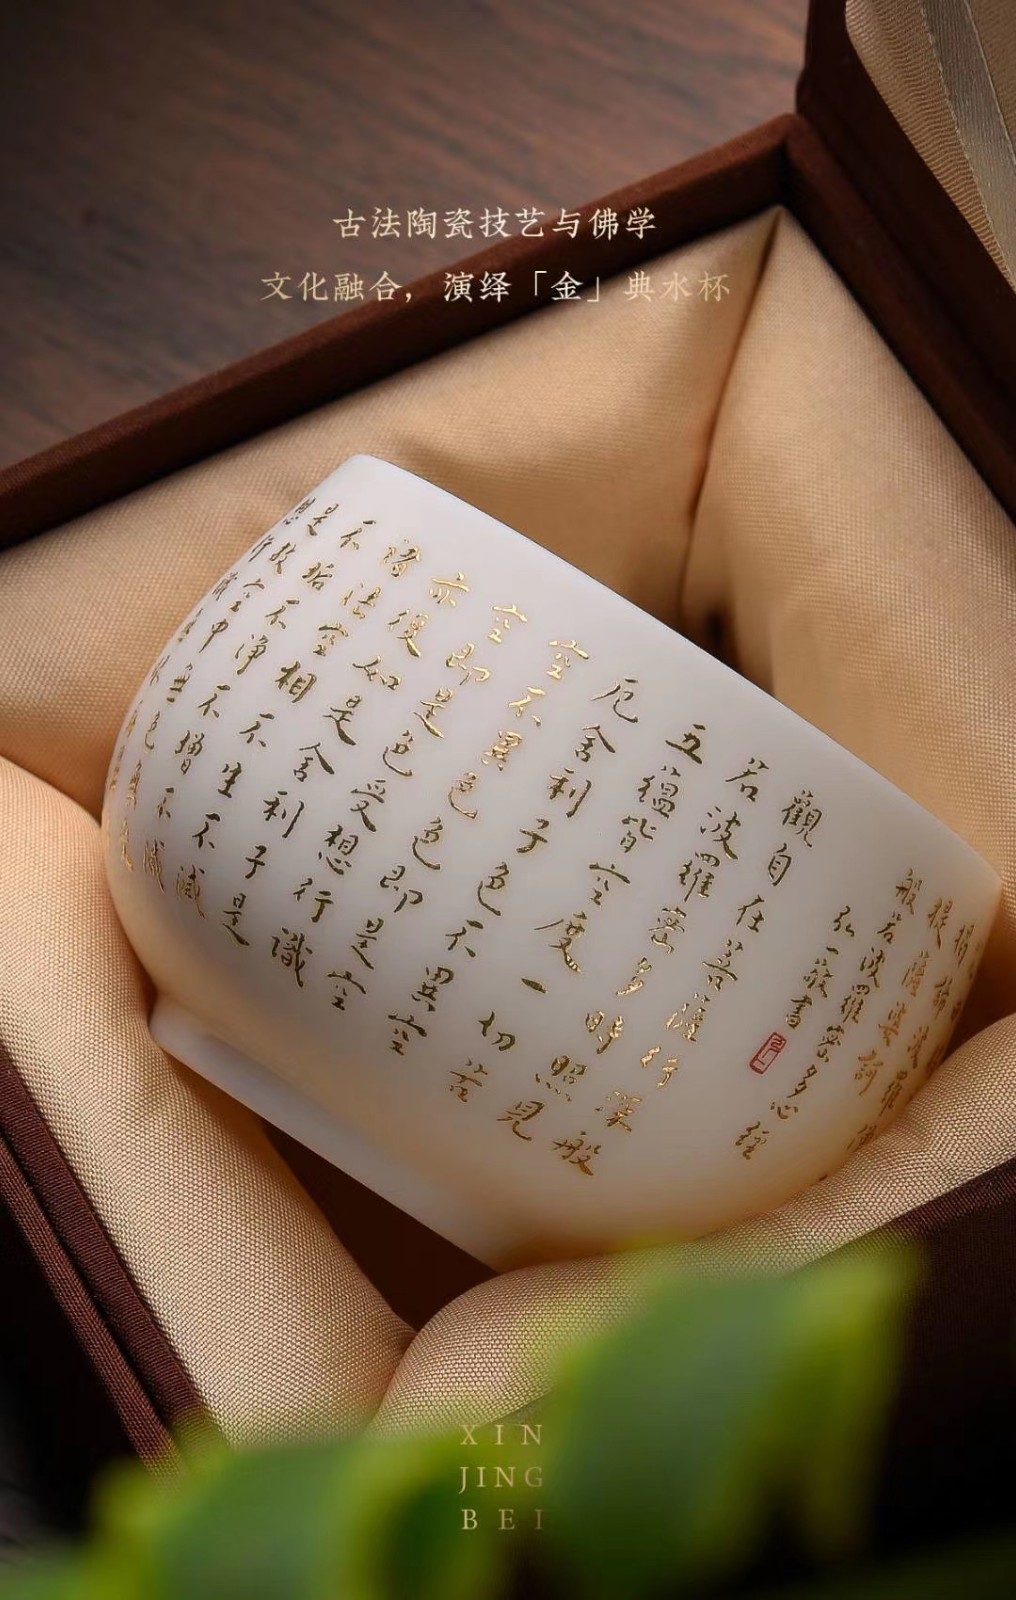 古法陶瓷技艺与佛学
文化融合，演绎「金」典水杯
揭諦波羅僧
提薩婆訶
般若波羅密多心經
弘一敬書
觀自在菩薩行深般
若波羅密多時照見
五蘊皆空度一切苦
厄舍利子色不異空
空不異色色即是空
空即是色受想行識
亦復如是舍利子是
諸法空相不生不滅
不垢不淨不增不減
是故空中無色無受
想行識
XIN
JING
BEI